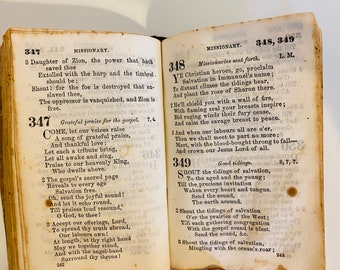 347 MISSIONARY.
3 Daughter of Zion, the power that hath
saved thee
Extolled with the harp and the timbrel
should be;
Shout! for the foe is destroyed that en-
slaved thee,
The oppressor is vanquished, and Zion is
free.
347 Grateful praise for the gospel. 7, 6.
COME, let our voices raise
A song of grateful praise,
And thankful love;
Let each a tribute bring,
Let all awake and sing,
Praise to our heavenly King,
Who dwells above.
2 The gospel's sacred page
Reveals to every age
Salvation free.
Oh, send the joyful sound!
And let it echo round,
Till praises loud resound,
O God, to thee!
3 Accept our offerings, Lord,
To spread thy truth abroad,
Our labours own;
At length, at thy right hand
May we together stand,
And with the angel-band
Surround thy throne!
242
MISSIONARY. 348, 349
348 Missionaries sent forth. L. M.
YE Christian heroes, go, proclaim
Salvation in Immanuel's name;
To distant climes the tidings bear,
And plant the rose of Sharon there.
2 He'll shield you with a wall of fire,
With flaming zeal your breasts inspire;
Bid raging winds their fury cease,
And calm the savage breast to peace.
3 And when our labours all are o'er,
Then we shall meet to part no more;
Meet, with the blood-bought throng to fall—
And crown our Jesus Lord of all.
349 Good tidings. 5, 7, 7.
SHOUT the tidings of salvation,
To the aged and the young;
Till the precious invitation
Waken every heart and tongue.
Send the sound,
The earth around.
2 Shout the tidings of salvation
O'er the prairies of the West;
Till each gathering congregation
With the gospel sound is blest.
Send the sound, &c.
3 Shout the tidings of salvation,
Mingling with the ocean's roar;
243